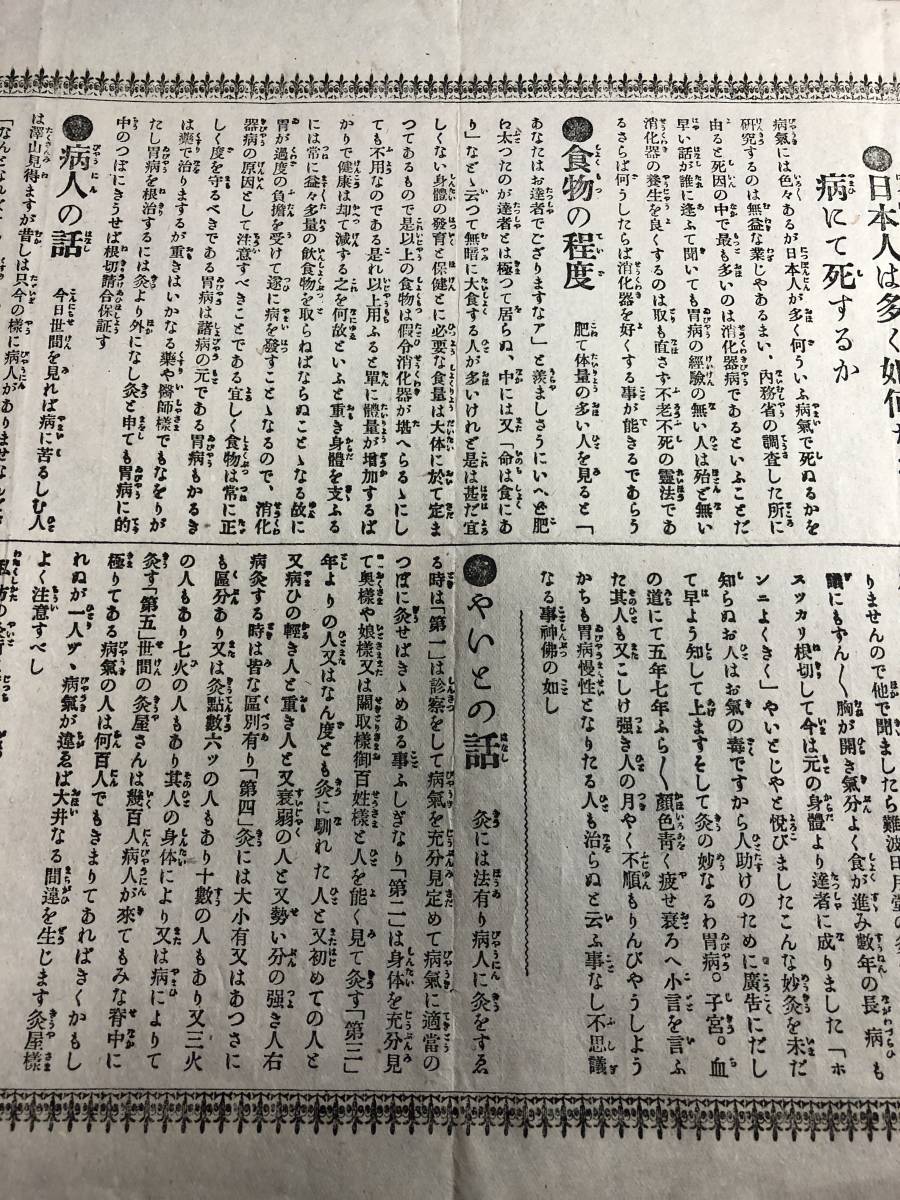 ●日本人は多く如何な
病にて死するか
病氣には色々あるが日本人が多く何ういふ病氣で死ぬるかを
研究するのは無益な業じやあるまい、内務省の調査した所に
由ると死因の中で最も多いのは消化器病であるといふことだ
早い話が誰に逢ふて聞いても胃病の經驗の無い人は殆ど無い
消化器の養生を良くするのは取も直さず不老不死の靈法であ
るさらば何うしたらば消化器を好くする事が能きるであらう
●食物の程度
肥て体量の多い人を見ると「
あなたはお達者でござりますなア」と羨ましさうにいへど肥
ら太つたのが達者とは極つて居らぬ、中には又「命は食にあ
り」などゝ云つて無暗に大食する人が多いけれど是は甚だ宜
しくない身體の發育と保健とに必要な食量は大体に於て定ま
つてあるもので是以上の食物は假令消化器が堪へらるゝにし
ても不用なのである是れ以上用ふると單に體量が增加するば
かりで健康は却て減ずる之を何故といふと重き身體を支ふる
には常に益々多量の飮食物を取らねばならぬことゝなる故に
胃が過度の負擔を受けて遂に病を發すことゝなるので、消化
器病の原因として注意すべきことである宜しく食物は常に正
しく度を守るべきである胃病は諸病の元である胃病もかるき
は藥で治りまするが重きはいかなる藥や醫師樣でもなをりが
たし胃病を根治するには灸より外になし灸と申ても胃病に的
中のつぼにきうせば根切請合保証す
●病人の話
今日世間を見れば病に苦るしむ人
は澤山見得ますが昔しは只今の樣に病人がありませなんだ
りませんので他で聞ましたら難波日月堂の灸
議にもずん〱胸が開き氣分よく食が進み數年の長病も
スツカリ根切して今は元の身體より達者に成りました「ホ
ンニよくきく」やいとじやと悅びましたこんな妙灸を未だ
知らぬお人はお氣の毒ですから人助けのために廣告にだし
て早よう知して上ますそして灸の妙なるわ胃病。子宮。血
の道にて五年七年ふら〱顏色靑く疲せ衰ろへ小言を言ふ
た其人も又こし强き人の月やく不順もりんびやうしよう
かちも胃病慢性となりたる人も治らぬと云ふ事なし不思議
なる事神佛の如し
●やいとの話
灸には法有り病人に灸をすゑ
る時は「第一」は診察をして病氣を充分見定めて病氣に適當の
つぼに灸せばきゝめある事ふしぎなり「第二」は身体を充分見
て奧樣や娘樣又は關取樣御百姓樣と人を能く見て灸す「第三」
年よりの人又はなん度とも灸に馴れた人と又初めての人と
又病ひの輕き人と重き人と又衰弱の人と又勢い分の强き人右
病灸する時は皆な區別有り「第四」灸には大小有又はあつさに
も區分あり又は灸點數六ッの人もあり十數の人もあり又三火
の人もあり七火の人もあり其人の身体により又は病によりて
灸す「第五」世間の灸屋さんは幾百人病人が來てもみな脊中に
極りてある病氣の人は何百人でもきまりてあればさくかもし
れぬが一人ヅヽ病氣が違ゑば大井なる間違を生じます灸屋樣
よく注意すべし